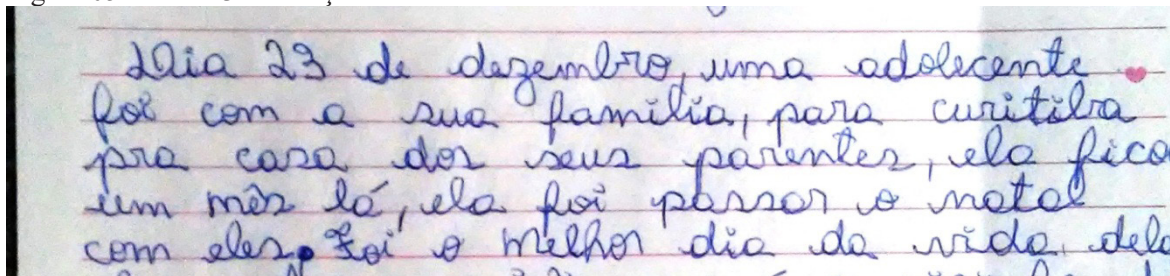 Dia 23 de dezembro, uma adolecente
foi com a sua família, para curitiba
pra casa dos seus parentes, ela fico
um mês lá, ela foi passar o natal
com eles. Foi o melhor dia da vida dela